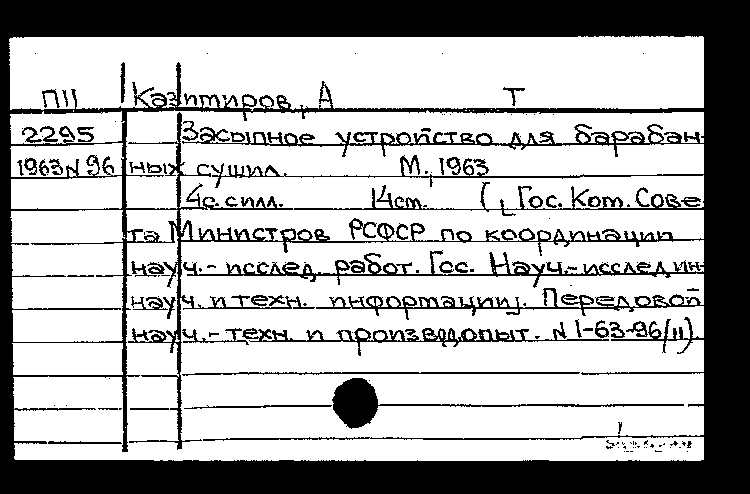 П11 Казптиров, А Т
2295 Засыпное устройство для барабан-
1963 N 96 ных сушил. М., 1963
4с. силл. 14ст. ( [Гос. Ком. Сове-
та Министров РСФСР по координации
науч.-исслед. работ. Гос. Науч.-исслед ин-
науч. и техн. информации]. Передовой
науч.-техн. и производ. опыт. N 1-63-96/11).